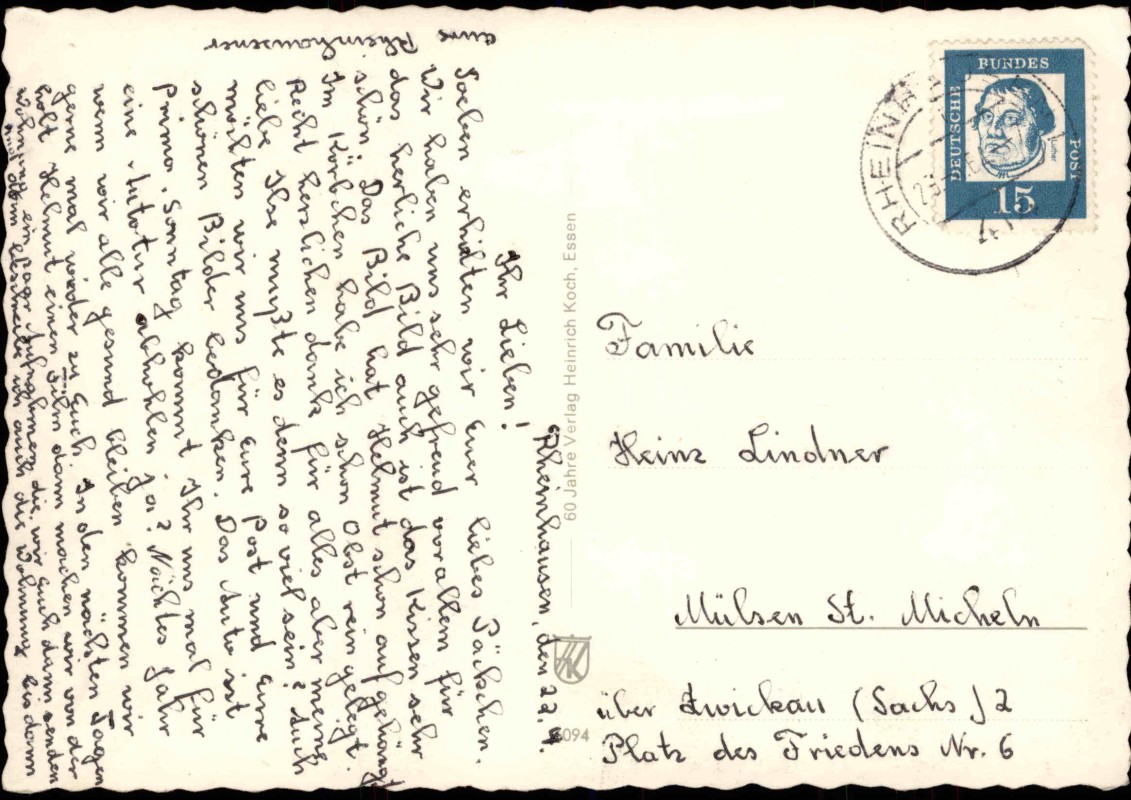 Rheinhausen, den 22. 4.
Ihr Lieben!
Soeben erhielten wir Euer liebes Päckchen.
Wir haben uns sehr gefreud vorallem für
das herliche Bild auch ist das Kissen sehr
schön. Das Bild hat Helmut schon aufgehängt
Im Körbchen habe ich schon Obst rein gelegt.
Recht herzlichen dank für alles aber meine
liebe Ilse myßte es denn so viel sein? Auch
möchten wir uns für eure Post und eure
schönen Bilder bedanken. Das Auto ist
prima. Sonntag kommt Ihr uns mal für
eine Autotur abhohlen ja? Nächtes Jahr
wenn wir alle gesund bleiben kommen wir
gerne mal wieder zu Euch. In den nächsten Tagen
holt Helmut einen Film dann machen wir von der
Wohnung ein paar Aufnahmen die wir euch dann senden
und dann beschreibe ich auch die Wohnung bis dann
eure Rheinhausener
60 Jahre Verlag Heinrich Koch, Essen
HK
5094
DEUTSCHE
BUNDES
POST
Luther
15
RHEINHAUSEN
Familie
Heinz Lindner
Mülsen St. Micheln
über Zwickau (Sachs) 2
Platz des Friedens Nr. 6